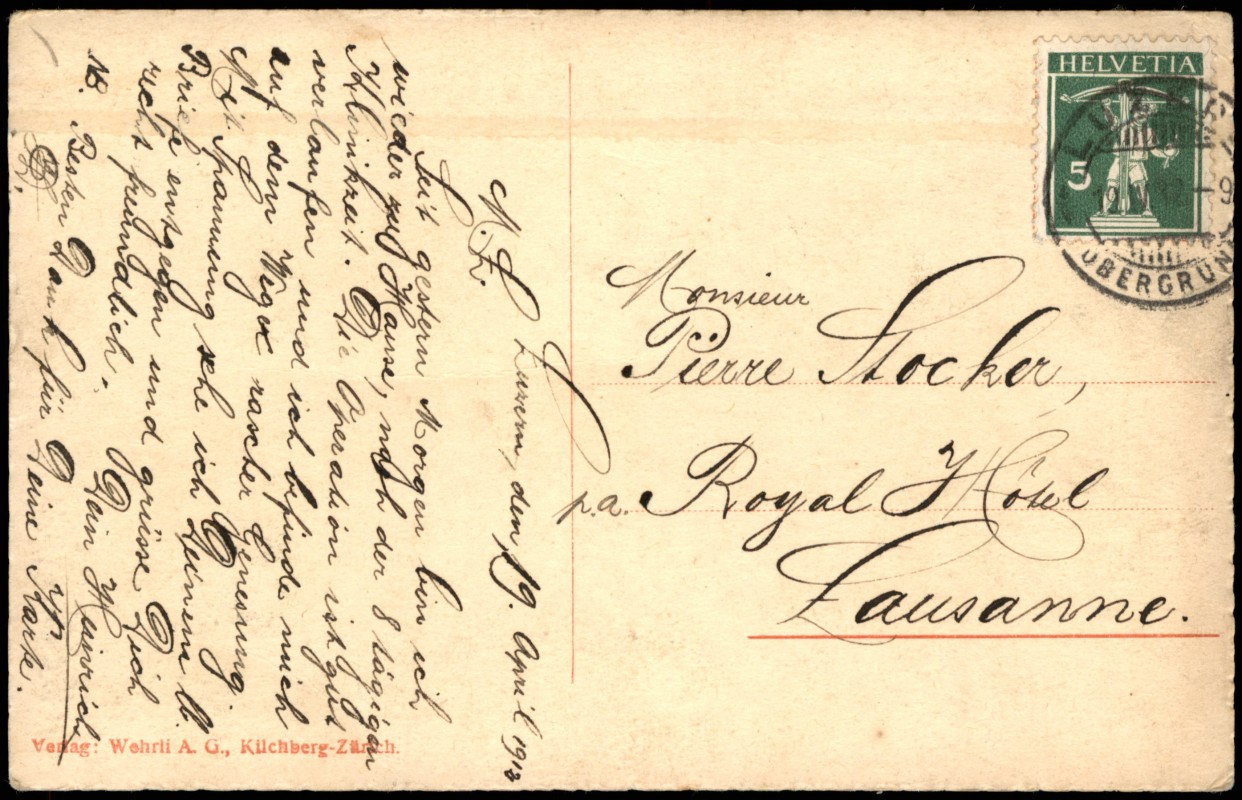 Luzern, den 19. April 1912
M. L. Fr.
Seit gestern Morgen bin ich
wieder zu Hause, nach der 8 tägigen
Klinikzeit. Die Operation ist gut
verlaufen und ich befinde mich
auf dem Wege rascher Genesung.
Mit Spannung sehe ich Deinem lb.
Briefe entgegen und grüsse Dich
recht freundlich.
Dein Heinrich
NB. Besten Dank für Deine Karte.
D. O.
HELVETIA
5
LUZERN
19. IV. 12 – 9
OBERGRUND
Monsieur
Pierre Stocker,
p.a. Royal Hôtel
Lausanne.
Verlag: Wehrli A. G., Kilchberg-Zürich.